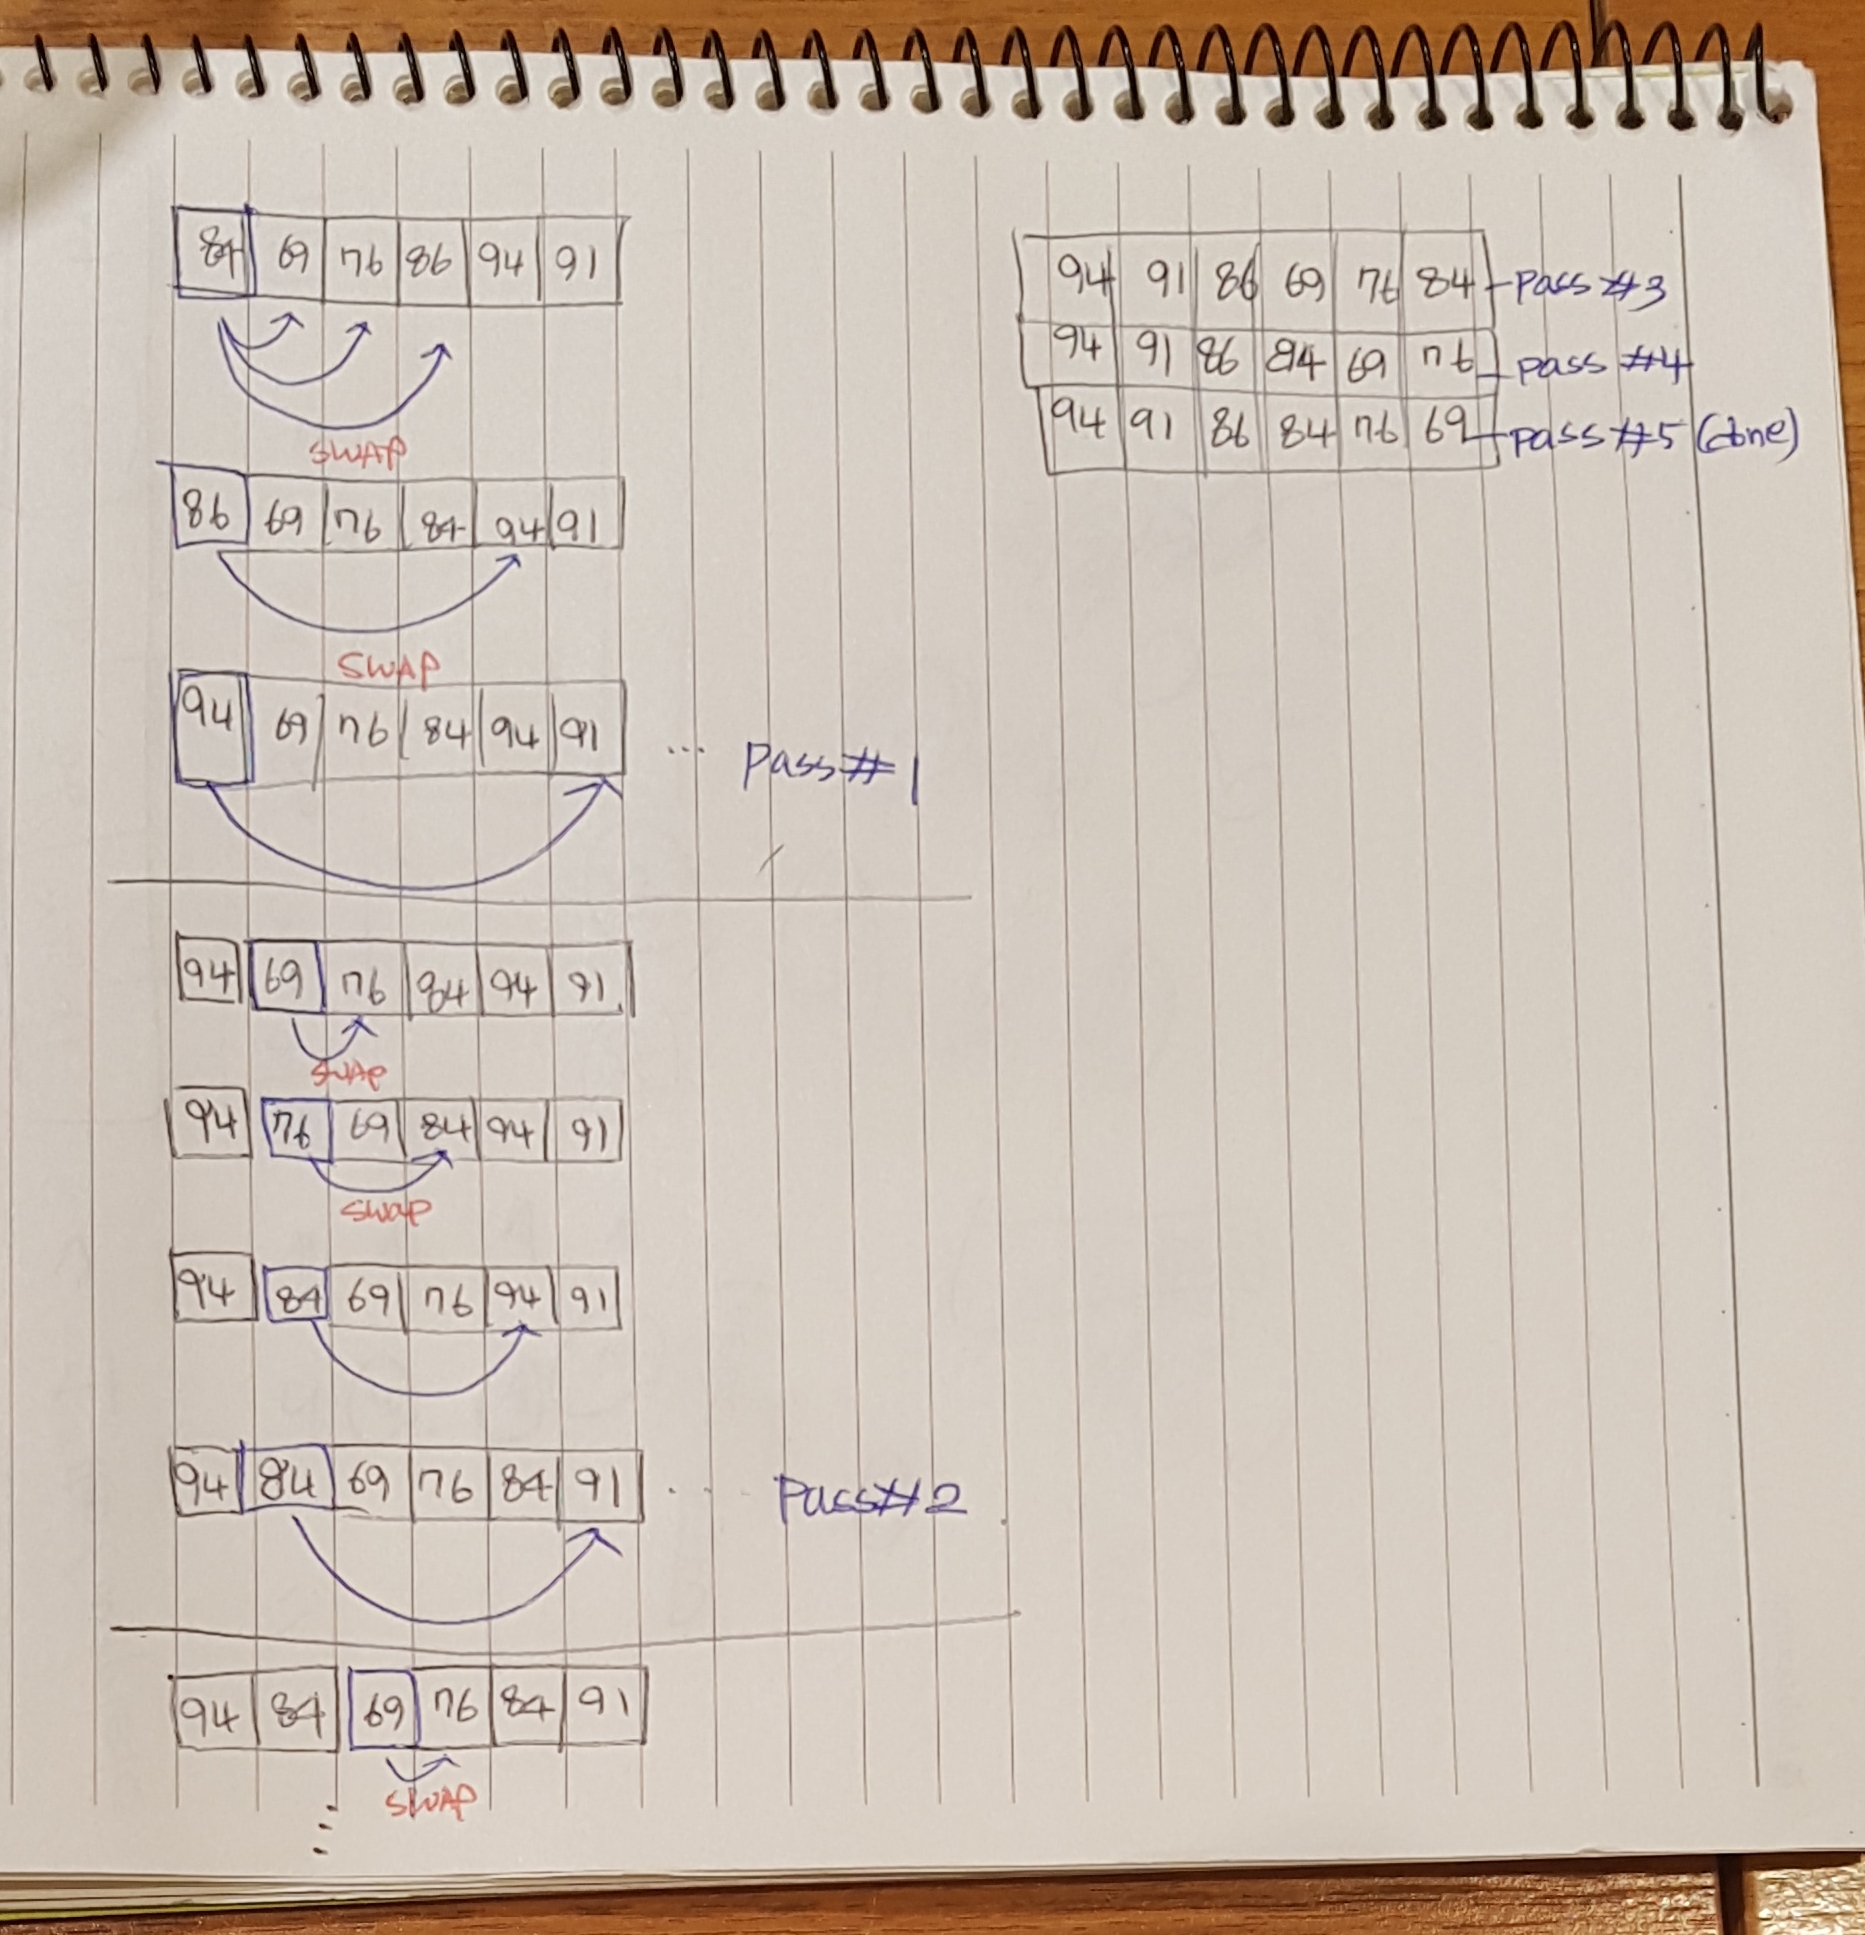 84 69 76 86 94 91
SWAP
86 69 76 84 94 91
SWAP
94 69 76 84 94 91 ... Pass#1
94 69 76 84 94 91
SWAP
94 76 69 84 94 91
swap
94 84 69 76 94 91
94 84 69 76 84 91 ... Pass#2
94 84 69 76 84 91
SWAP
⋮
94 91 86 69 76 84 - Pass #3
94 91 86 84 69 76 - pass #4
94 91 86 84 76 69 - pass #5 (done)